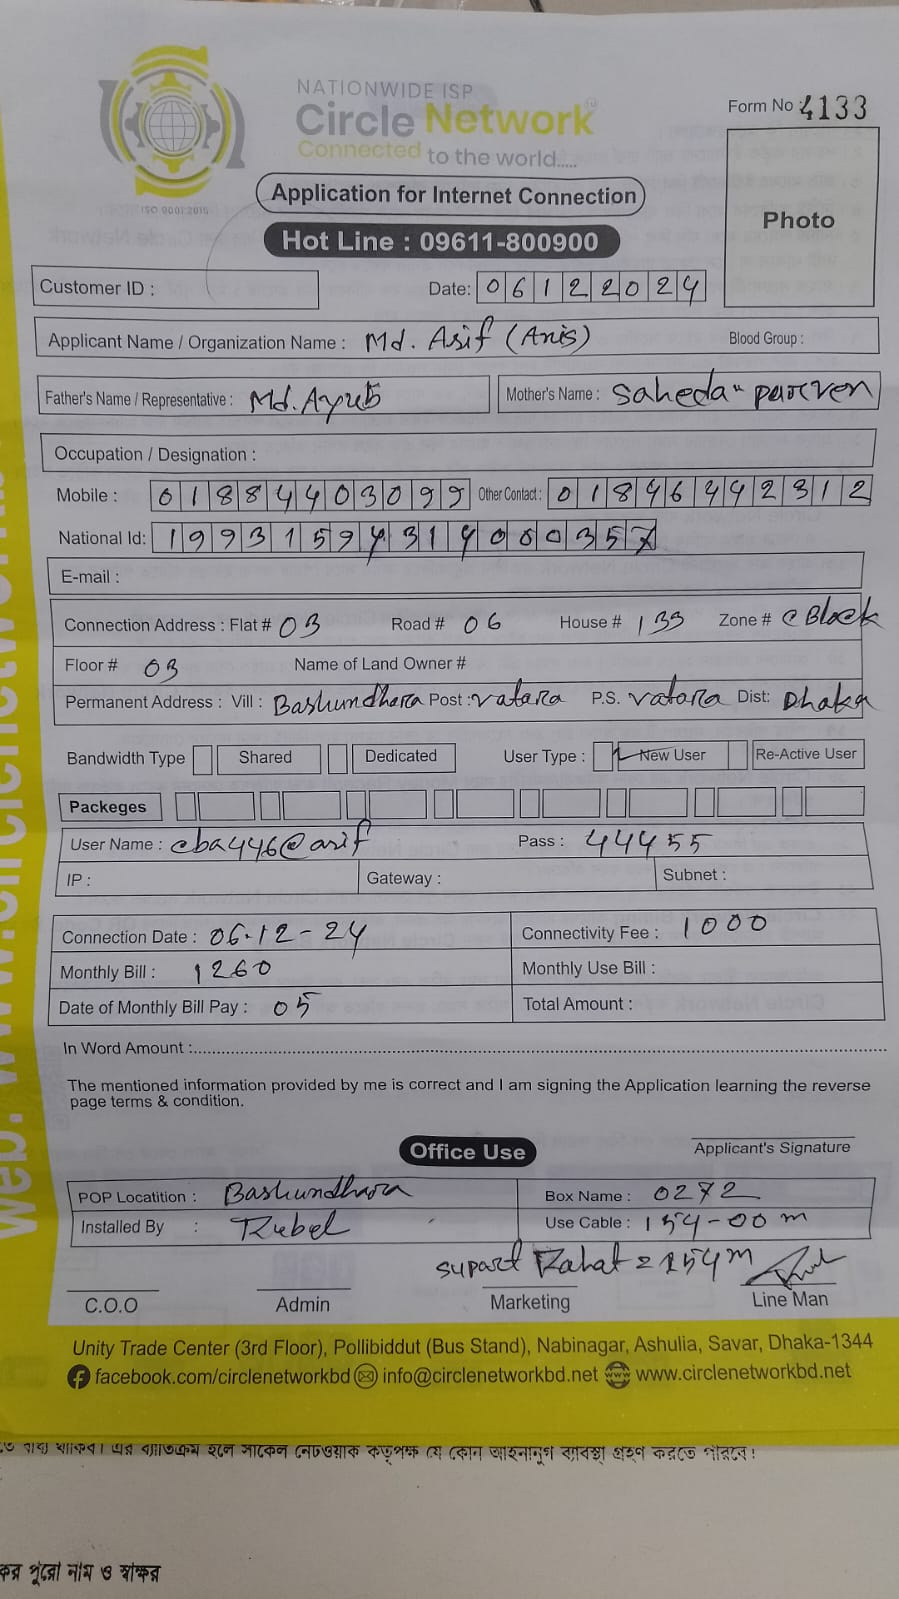 NATIONWIDE ISP
Circle Network
Connected to the world.....
ISO 9001:2015
Form No : 4133
Photo
Application for Internet Connection
Hot Line : 09611-800900
Customer ID : Date: 06122024
Applicant Name / Organization Name : Md. Asif (Anis) Blood Group :
Father's Name / Representative : Md. Ayub Mother's Name : Saheda parven
Occupation / Designation :
Mobile : 01884403099 Other Contact : 01846442312
National Id: 19931594314000357
E-mail :
Connection Address : Flat # 03 Road # 06 House # 133 Zone # C Block
Floor # 03 Name of Land Owner #
Permanent Address : Vill : Bashundhara Post : vatara P.S. vatara Dist: Dhaka
Bandwidth Type Shared Dedicated User Type : New User Re-Active User
Packeges
User Name : cba446@asif Pass : 44455
IP : Gateway : Subnet :
Connection Date : 06-12-24 Connectivity Fee : 1000
Monthly Bill : 1260 Monthly Use Bill :
Date of Monthly Bill Pay : 05 Total Amount :
In Word Amount :
The mentioned information provided by me is correct and I am signing the Application learning the reverse
page terms & condition.
Applicant's Signature
Office Use
POP Locatition : Bashundhara Box Name : 0272
Installed By : Rubel Use Cable : 154-00 m
supart Rahat = 154m
C.O.O Admin Marketing Line Man
Unity Trade Center (3rd Floor), Pollibiddut (Bus Stand), Nabinagar, Ashulia, Savar, Dhaka-1344
facebook.com/circlenetworkbd info@circlenetworkbd.net www.circlenetworkbd.net
web: www.circlenetwork
বাধ্য থাকিব। এর ব্যতিক্রম হলে সার্কেল নেটওয়ার্ক কতৃপক্ষ যে কোন আইনানুগ ব্যবস্থা গ্রহণ করতে পারবে।
পুরো নাম ও স্বাক্ষর